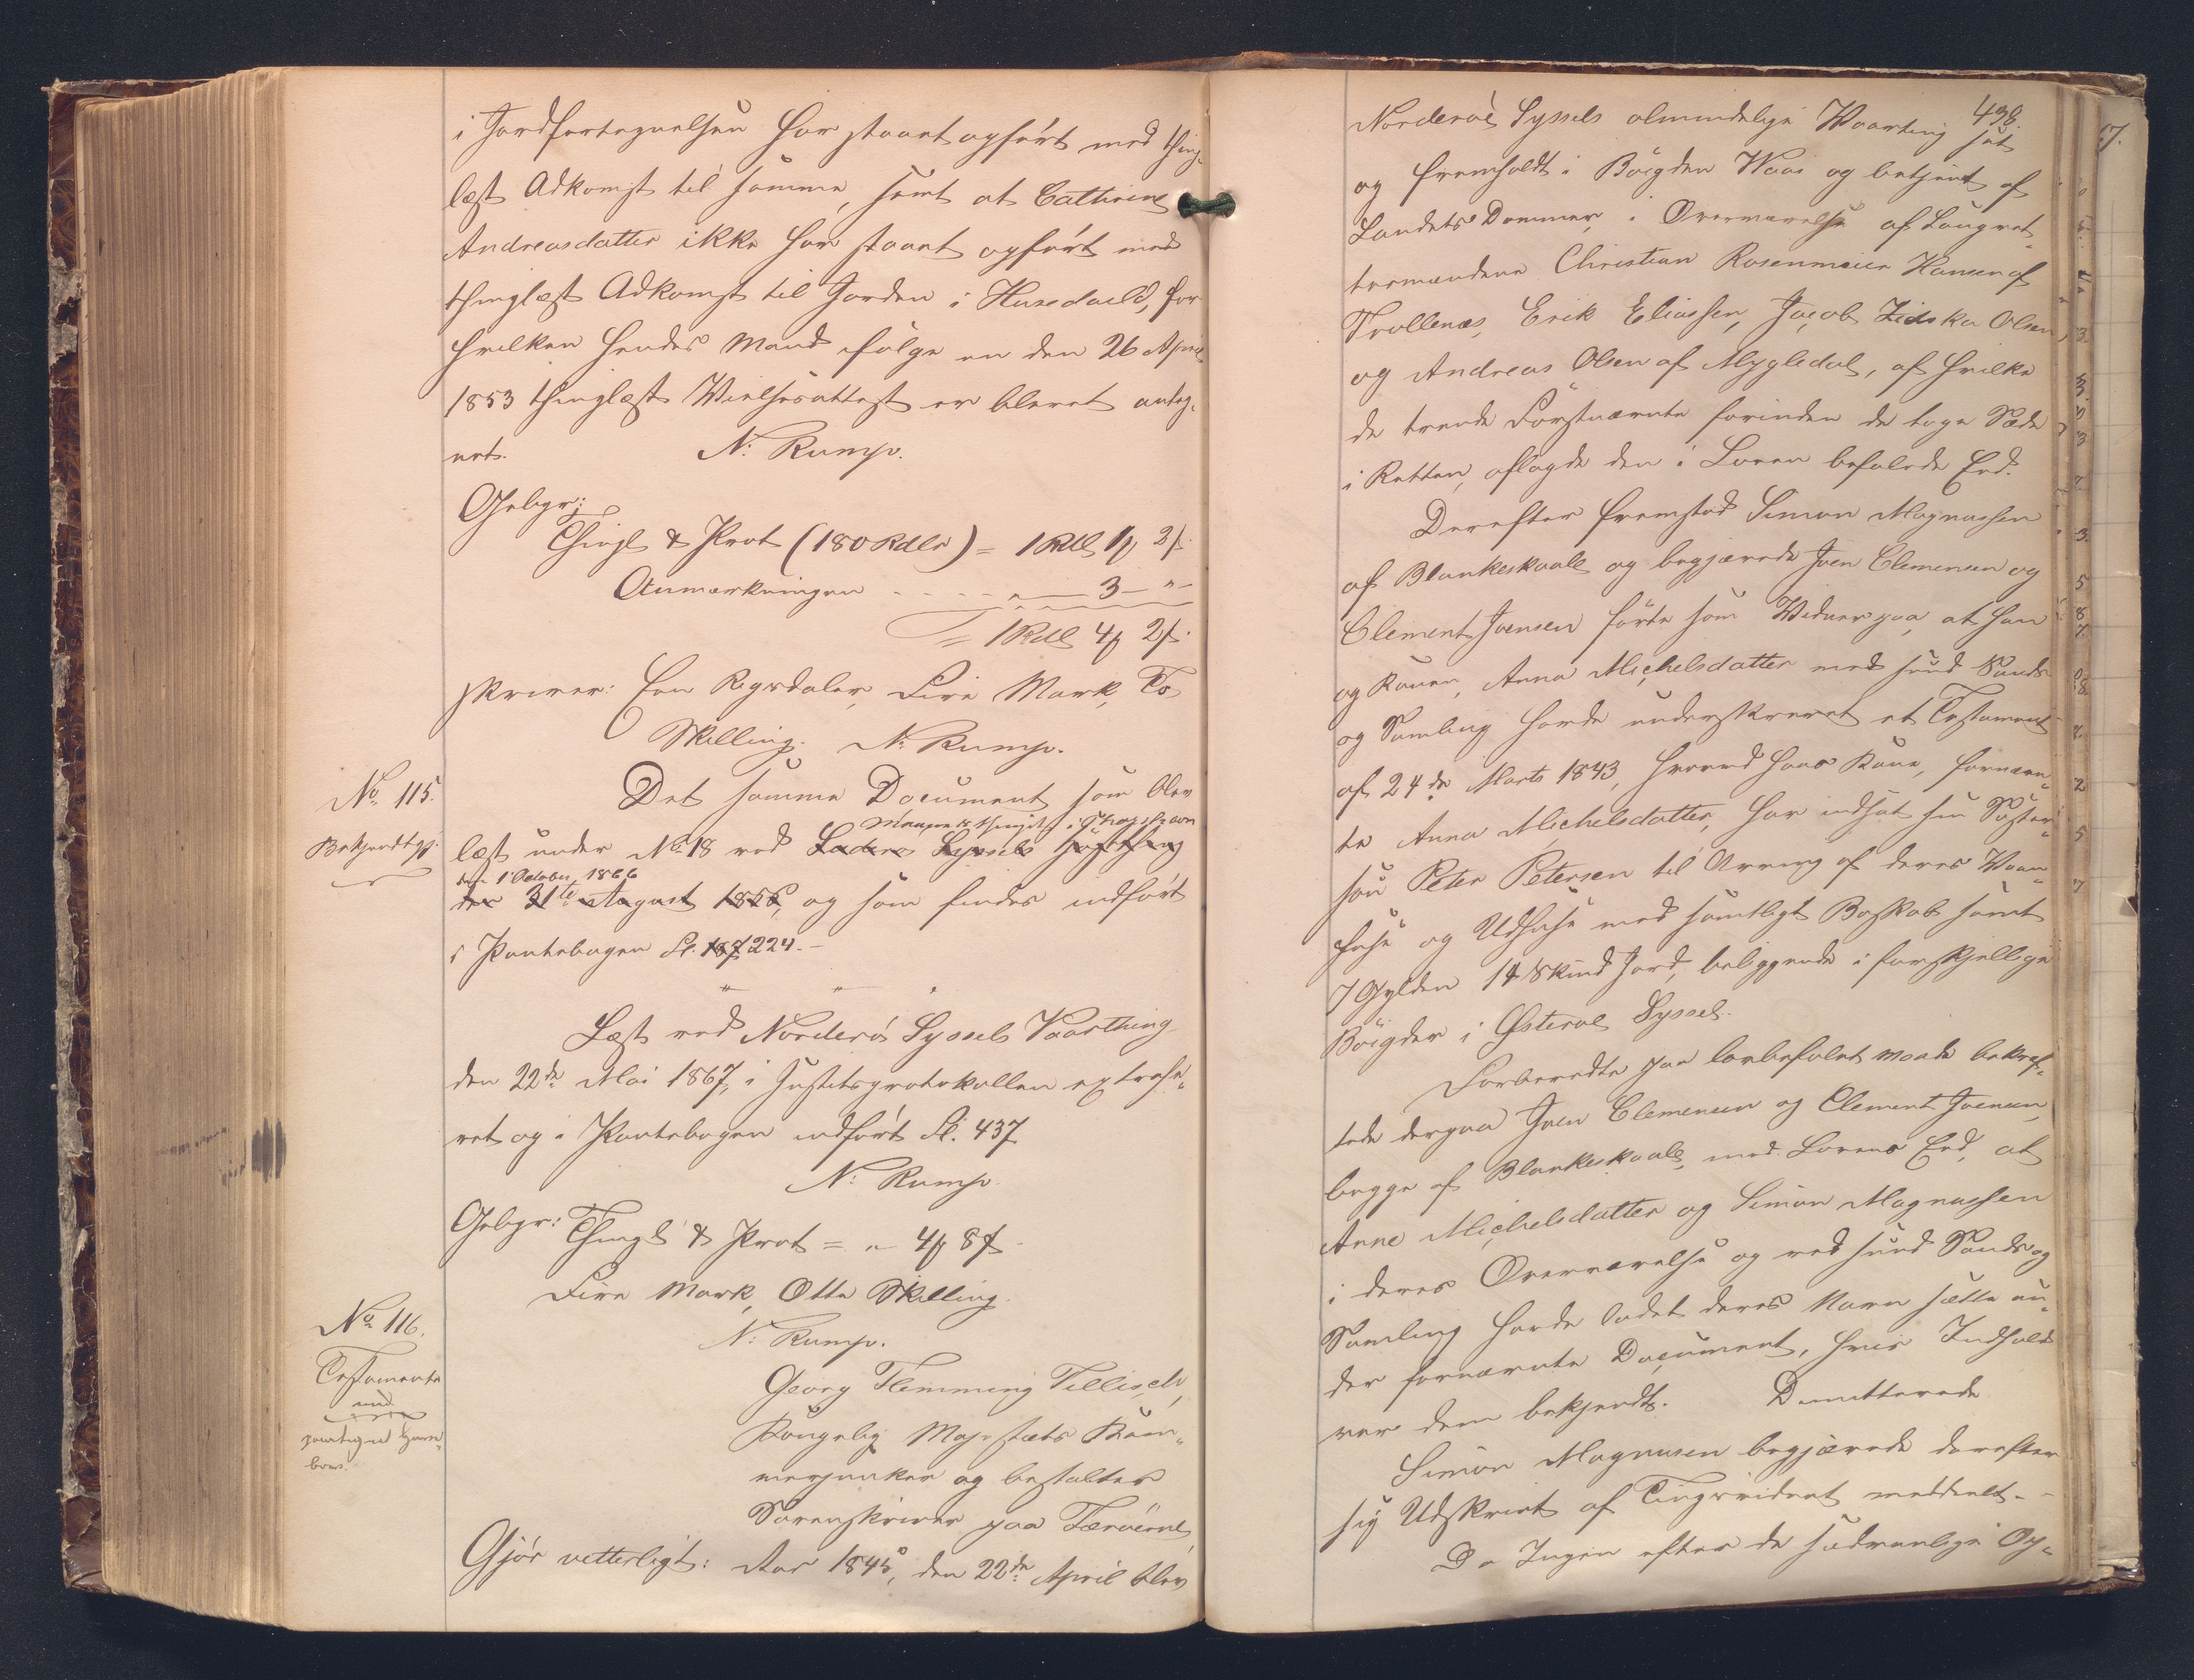 i Jordfortegnelsen har staaet opført med thing-
læst Adkomst til samme, samt at Cathrine
Andreasdatter ikke har staaet opført med
thinglæst Adkomst til Jorden i Husedoeld, for
hvilken hendes Mand ifølge en den 26 April
1853 thinglæst Vielsesattest er blevet anteg-
net. N: Rump.
Gebyr:
Thingl & Prot (180 Rdlr) = 1 Rdl 1 ꝟ 2 s.
Anmærkningen - - - - " — 3 — " —
= 1 Rdl 4 ꝟ 2 s.
skriver: Een Rigsdaler, Fire Mark, To
Skilling. N: Rump.
No 115.
Bekjendtgj.
Det samme Document som blev
læst under No 18 ved Suderø Syssels Høstthing
Manedsthinget i Thorshavn
den 1 October 1866
den 31te August 1856, og som findes indført
i Pantebogen Fl. 187 224. —
" " "
Læst ved Norderø Syssels Vaarthing
den 22de Mai 1867, i Justitsprotokollen extrahe-
ret og i Pantebogen indført Fl. 437
N: Rump.
Gebyr: Thingl & Prot = " 4 ꝟ 8 s
Fire Mark, Otte Skilling.
N: Rump.
No 116.
Testamente
med
paategnet
Georg Flemming Tillisch,
Kongelig Majestæts Kam-
merjunker og bestalter
Sorenskriver paa Færøerne,
Gjør vitterligt: Aar 1845, den 22de April blev
438.
Norderøe Syssels almindelige Vaarting sat
og fremholdt i Bøigden Waai og betjent af
Landets Dommer, i Overværelse af Laugret-
tesmændene Christian Rosenmeier Hansen af
Trollenæs, Erik Eliassen, Jacob Zidska Olsen,
og Andreas Olsen af Mygledal, af hvilke
de trende Førstnævnte forinden de toge Sæde
i Retten, aflagde den i Loven befalede Eed.
Derefter fremstod Simon Magnussen
af Blankeskaale og begjærede Joen Clemensen og
Clement Joensen førte som Vidner paa, at han
og Konen, Anna Michelsdatter med sund Sands
og Samling havde underskrevet et Testament
af 24de Marts 1843, hvorved hans Kone, fornævn-
te Anna Michelsdatter, har indsat sin Søster-
søn Peter Petersen til Arving af deres Vaan-
huse og Udhuse med samtligt Boskab samt
7 Gylden 14 Skind Jord, beliggende i forskjellige
Bøigder i Østerøe Syssel.
Forberedte paa lovbefalet Maade bekref-
tede derpaa Joen Clemensen og Clement Joensen,
begge af Blankeskaale, med Lovens Eed, at
Anne Michelsdatter og Simon Magnussen
i deres Overværelse og ved sund Sands og
Samling havde ladet deres Navn sætte un-
der fornævnte Document, hvis Indhold
var dem bekjendt. Dimitterede
Simon Magnusen begjærede derefter
sig Udskrivt af Tingsvidnet meddeelt. —
Da Ingen efter de sædvanlige Op-